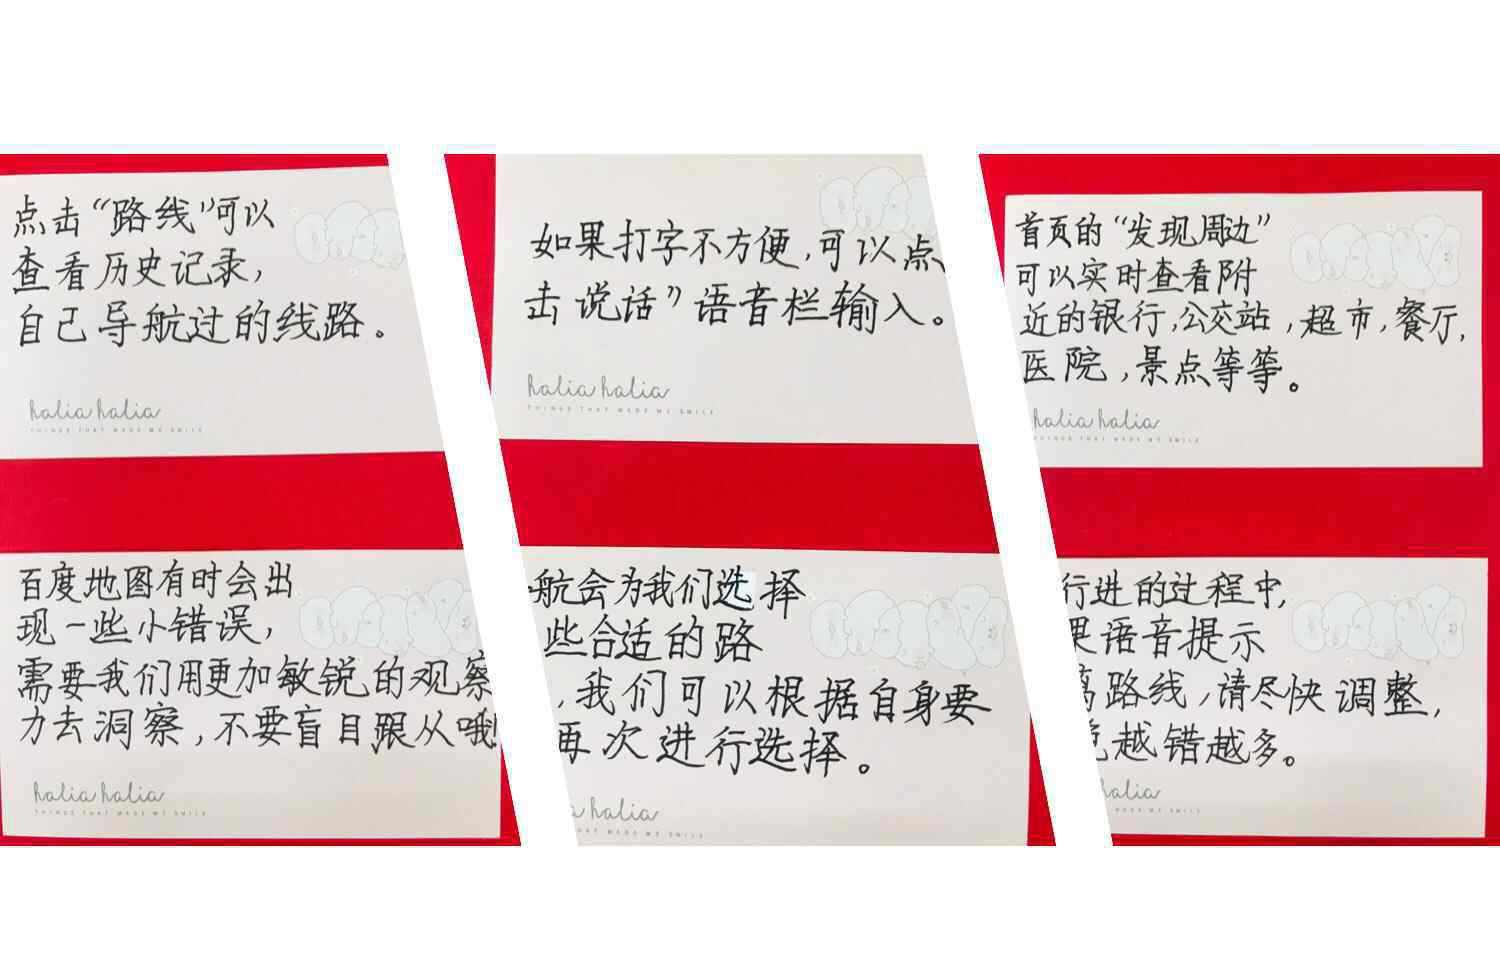 点击“路线”可以
查看历史记录，
自己导航过的线路。
halia halia
THINGS THAT MADE ME SMILE
如果打字不方便，可以点
击说话”语音栏输入。
halia halia
THINGS THAT MADE ME SMILE
首页的“发现周边”
可以实时查看附
近的银行，公交站，超市，餐厅，
医院，景点等等。
halia halia
THINGS THAT MADE ME SMILE
百度地图有时会出
现一些小错误，
需要我们用更加敏锐的观察
力去洞察，不要盲目跟从哦！
halia halia
THINGS THAT MADE ME SMILE
航会为我们选择
些合适的路
，我们可以根据自身要
再次进行选择。
halia
THAT MADE ME SMILE
行进的过程中，
果语音提示
离路线，请尽快调整，
越错越多。
halia
THAT MADE ME SMILE